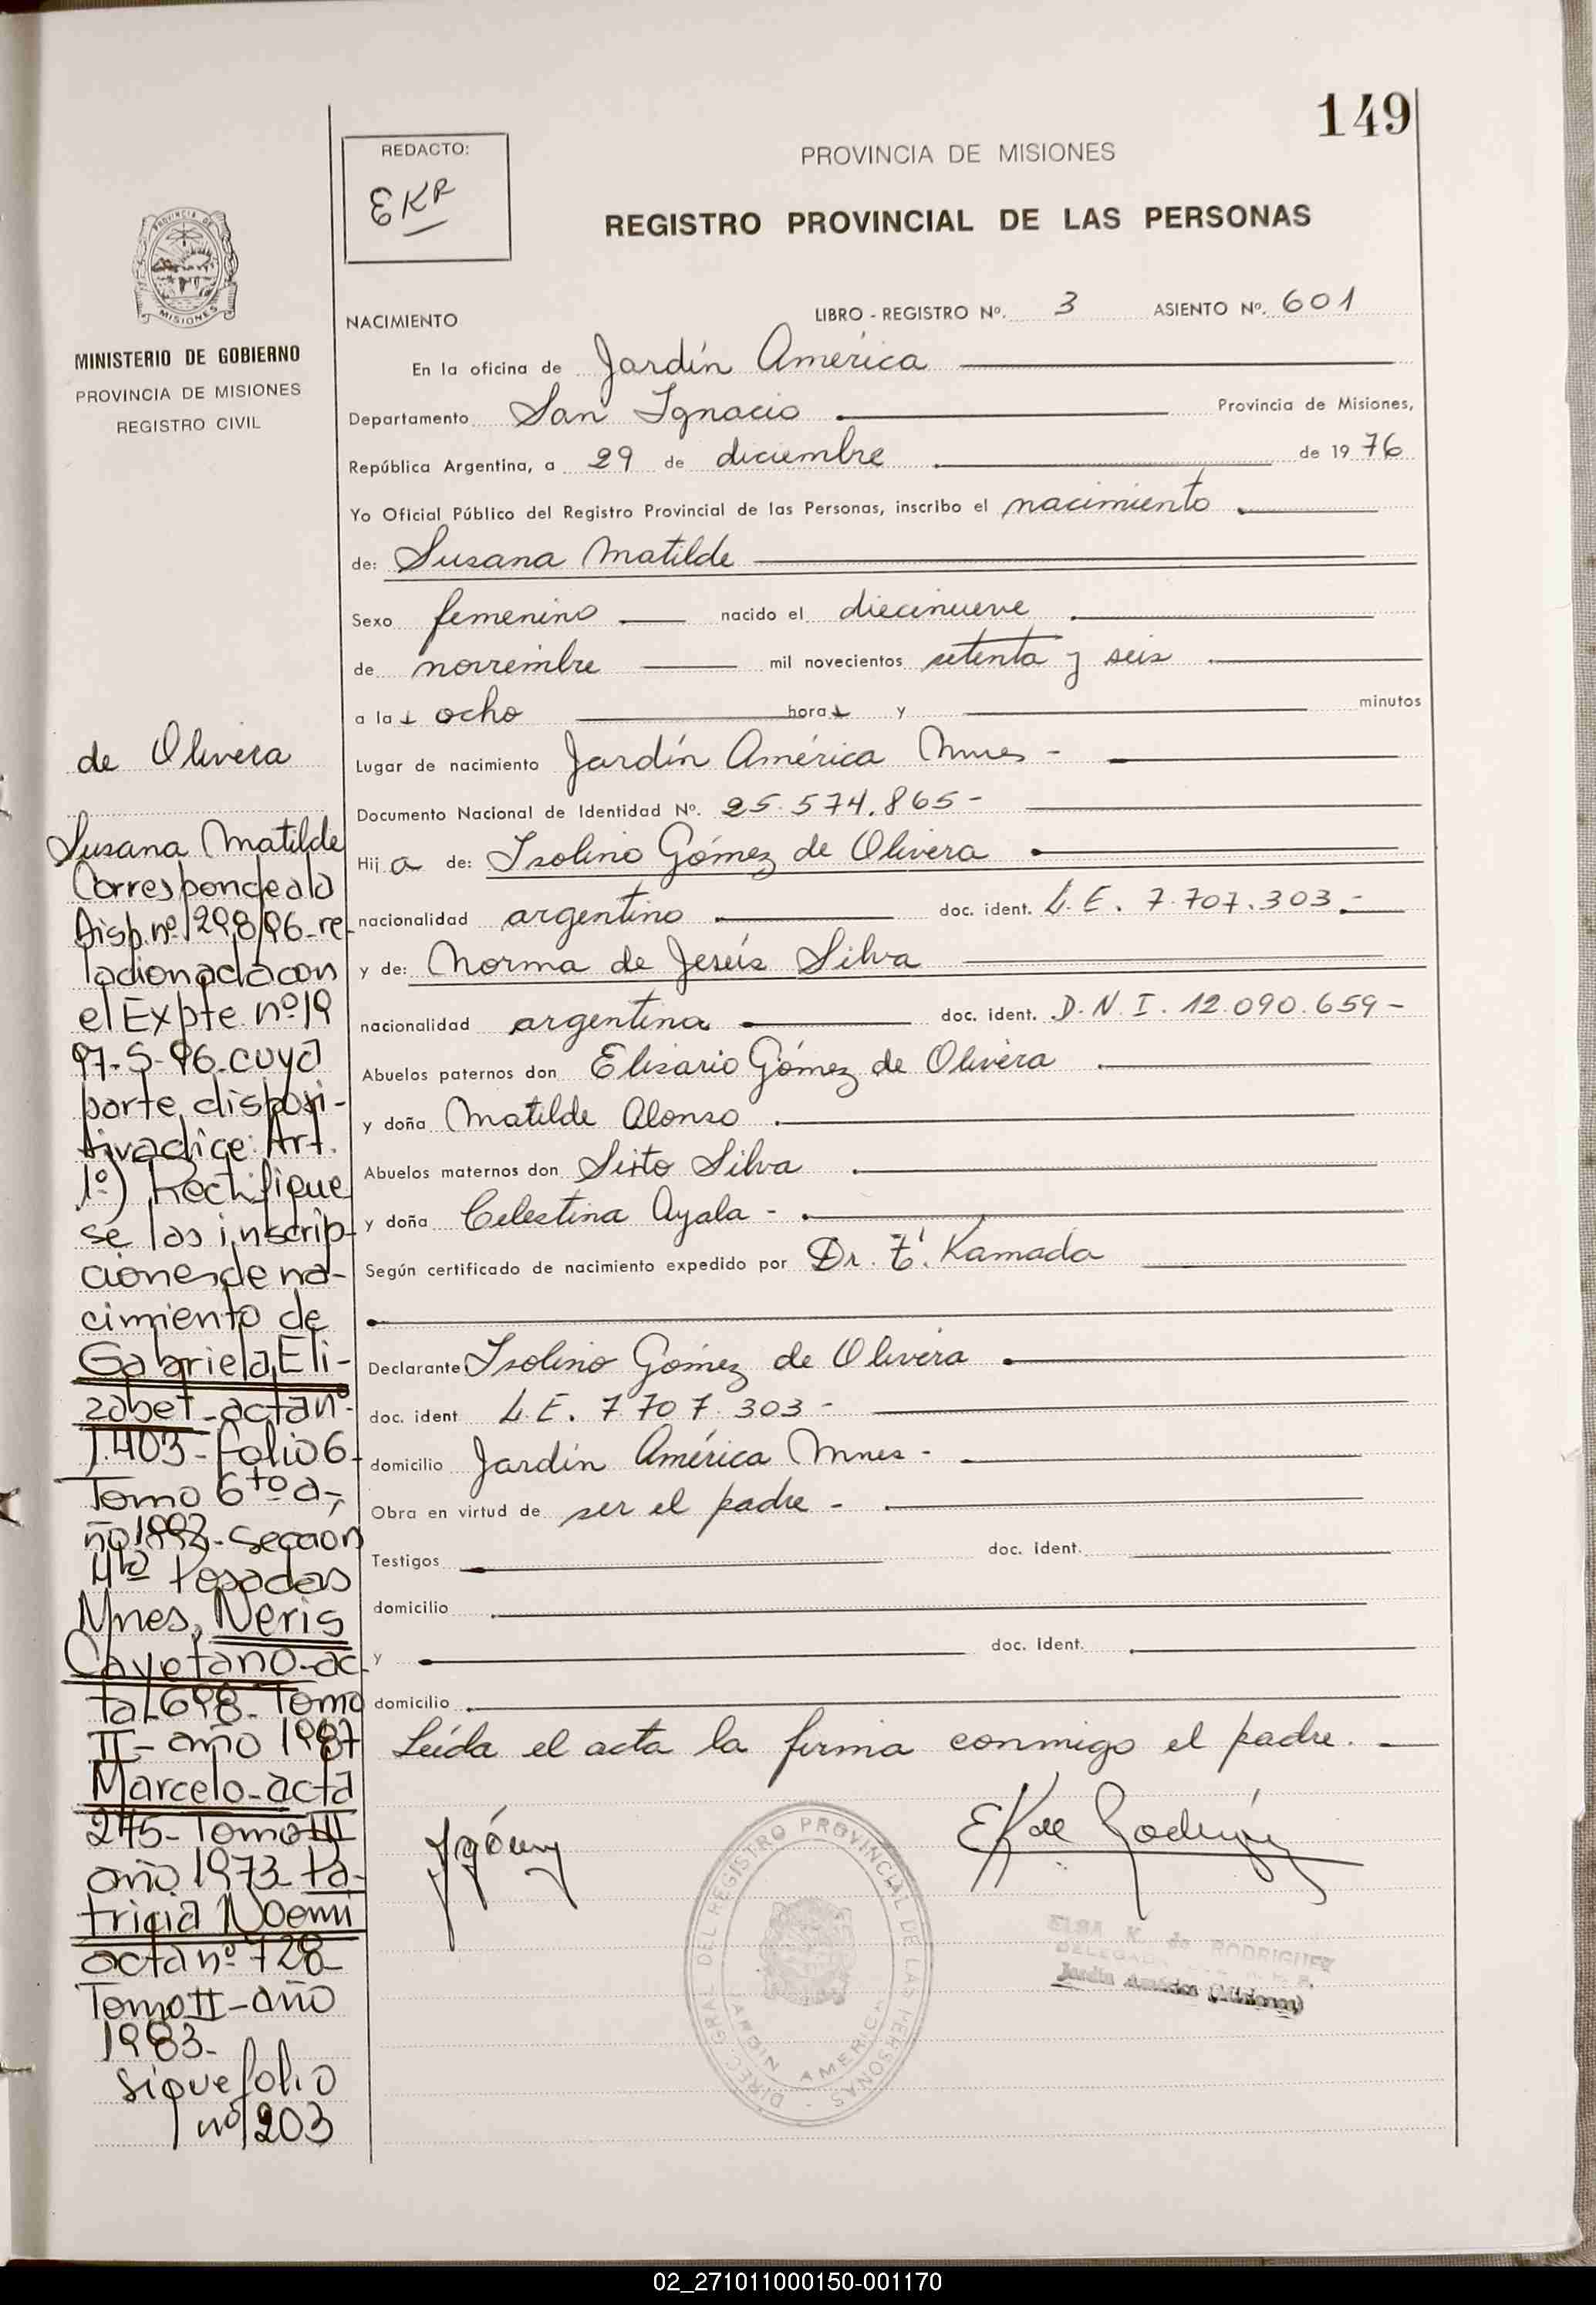 149
REDACTO:
EKR
PROVINCIA DE MISIONES
REGISTRO PROVINCIAL DE LAS PERSONAS
PROVINCIA DE
MISIONES
MINISTERIO DE GOBIERNO
PROVINCIA DE MISIONES
REGISTRO CIVIL
NACIMIENTO LIBRO - REGISTRO Nº. 3 ASIENTO Nº. 601
En la oficina de Jardín América
Departamento San Ignacio Provincia de Misiones,
República Argentina, a 29 de diciembre de 1976
Yo Oficial Público del Registro Provincial de las Personas, inscribo el nacimiento
de: Susana Matilde
Sexo femenino nacido el diecinueve
de noviembre mil novecientos setenta y seis
a las ocho horas y minutos
Lugar de nacimiento Jardín América Mnes -
Documento Nacional de Identidad Nº. 25.574.865-
Hija de: Isolino Gómez de Olivera
nacionalidad argentino doc. ident. L.E. 7.707.303.-
y de: Norma de Jesús Silva
nacionalidad argentina doc. ident. D.N.I. 12.090.659-
Abuelos paternos don Elisario Gómez de Olivera
y doña Matilde Alonso
Abuelos maternos don Sixto Silva
y doña Celestina Ayala -
Según certificado de nacimiento expedido por Dr. T. Kamada
Declarante Isolino Gómez de Olivera
doc. ident L.E. 7.707.303-
domicilio Jardín América Mnes-
Obra en virtud de ser el padre -
Testigos doc. ident.
domicilio
y doc. ident.
domicilio
Leída el acta la firma conmigo el padre.
EK de Rodríguez
DIREC. GRAL. DEL REGISTRO PROVINCIAL DE LAS PERSONAS
JARDIN AMERICA
ELSA K. de RODRIGUEZ
Jardín América (Misiones)
de Olivera
Susana Matilde
Corresponde a la
Disp. nº 298/96-re
lacionada con
el Expte. nº 19
97-S-96-cuya
parte disposi-
tiva dice: Art.
1º) Rectifique
se las inscrip-
ciones de na-
cimiento de
Gabriela Eli-
zabet-acta nº
1.403-folio 6-
Tomo 6to a-
ño 1992-Sección
4ta Posadas
Mnes, Neris
Cayetano-ac-
ta 698-Tomo
II-año 1987
Marcelo-acta
275-Tomo III
año 1973 Pa-
tricia Noemi
acta nº 728
Tomo II-año
1983-
sigue folio
nº 203
02_271011000150-001170